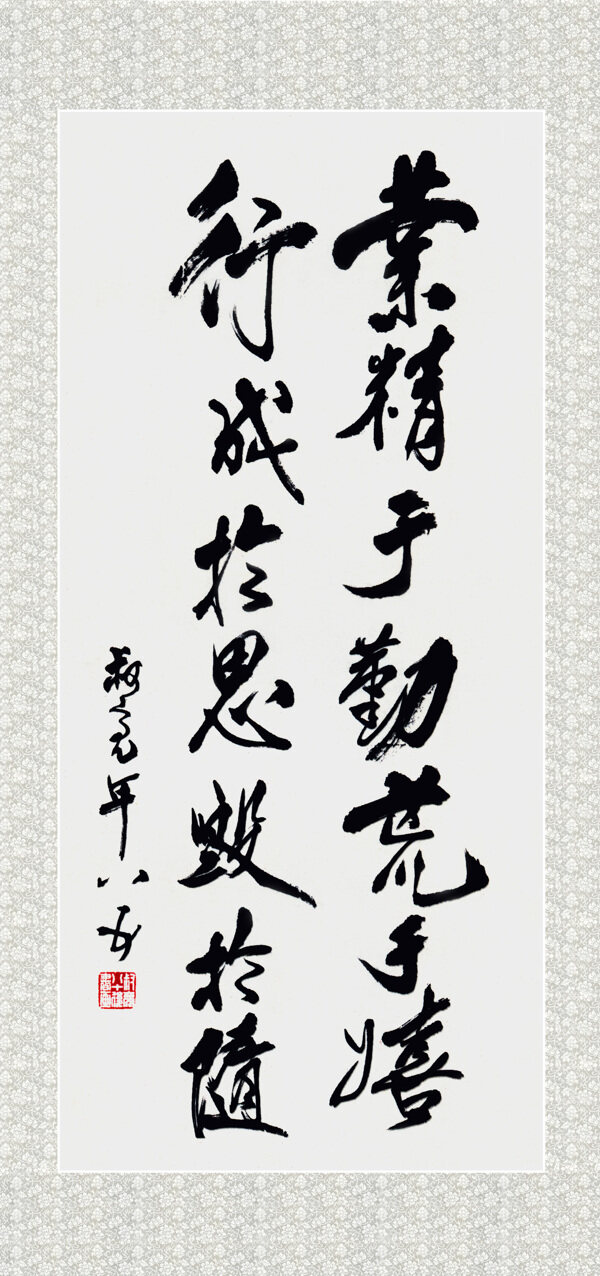 業精于勤荒于嬉
行成於思毀於隨
年八五